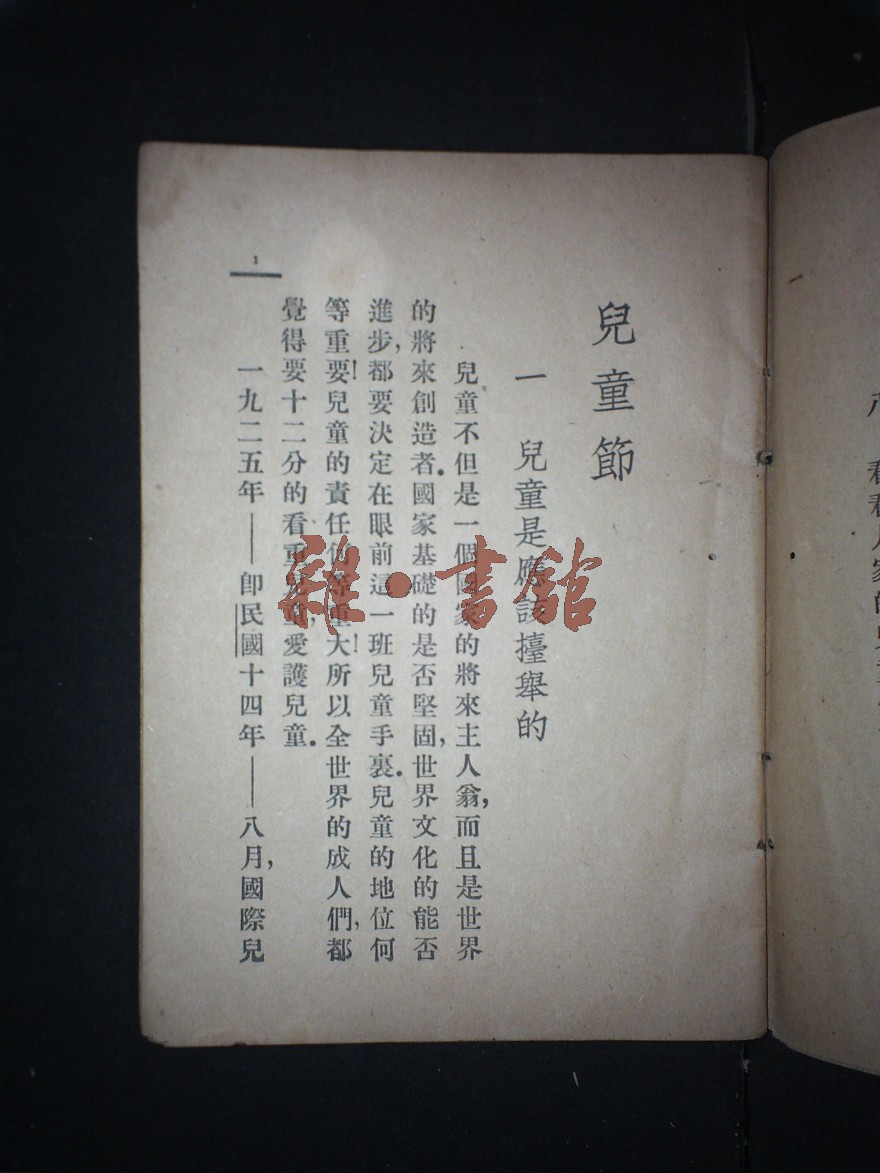 兒童節
一　兒童是應該擡舉的
兒童不但是一個國家的將來主人翁，而且是世界
的將來創造者。國家基礎的是否堅固，世界文化的能否
進步，都要決定在眼前這一班兒童手裏。兒童的地位何
等重要！兒童的責任何等重大！所以全世界的成人們，都
覺得要十二分的看重兒童，愛護兒童。
一九二五年——卽民國十四年——八月，國際兒
1
雜·書館